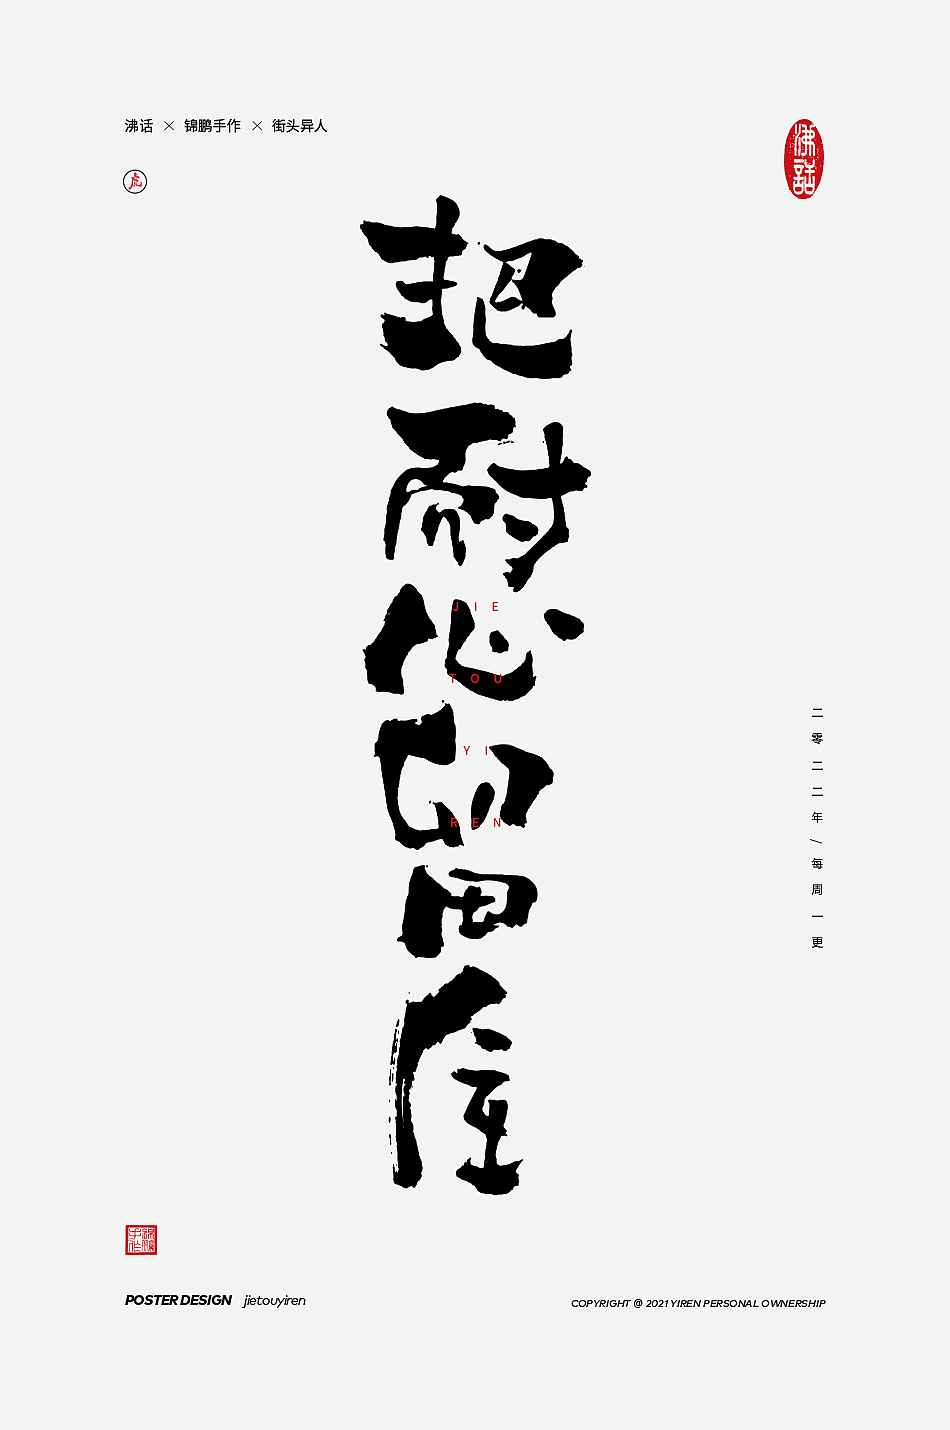 沸话 × 锦鹏手作 × 街头异人
虎
沸話
把耐心留住
JIE
TOU
YI
REN
二零二二年/每周一更
POSTER DESIGN jietouyiren
COPYRIGHT @ 2021 YIREN PERSONAL OWNERSHIP